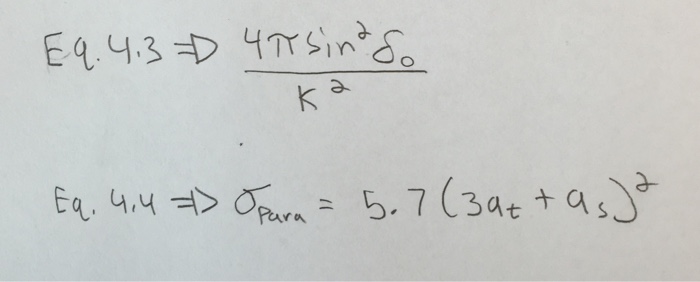 Eq. 4.3 ⇒ 4π sin²δ₀ / K²
Eq. 4.4 ⇒ σ_para = 5.7 (3a_t + a_s)²